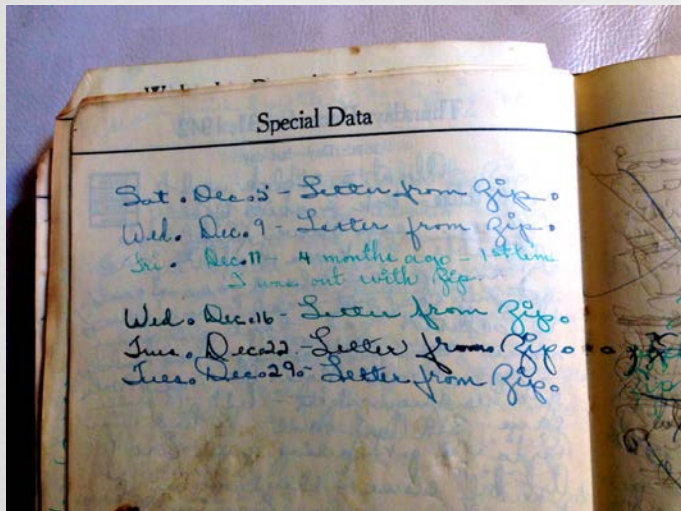 Special Data
Sat. Dec. 5 - Letter from Zip.
Wed. Dec. 9 - Letter from Zip.
Fri. Dec. 11 - 4 months ago - 1st time
I was out with Zip.
Wed. Dec. 16 - Letter from Zip.
Tues. Dec. 22 - Letter from Zip.
Tues. Dec. 29 - Letter from Zip.